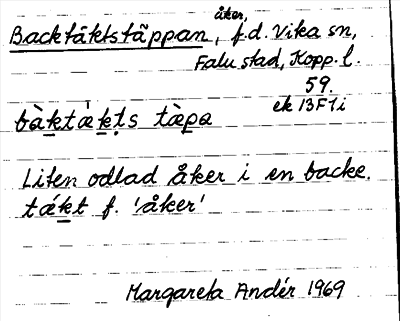 åker,
Backtäktstäppan, f.d. Vika sn,
Falu stad, Kopp. l.
59.
ek 13F1i
bàktǽkṭs tæ̀pa
Liten odlad åker i en backe.
tǽkt f. 'åker'
Margareta Andér 1969